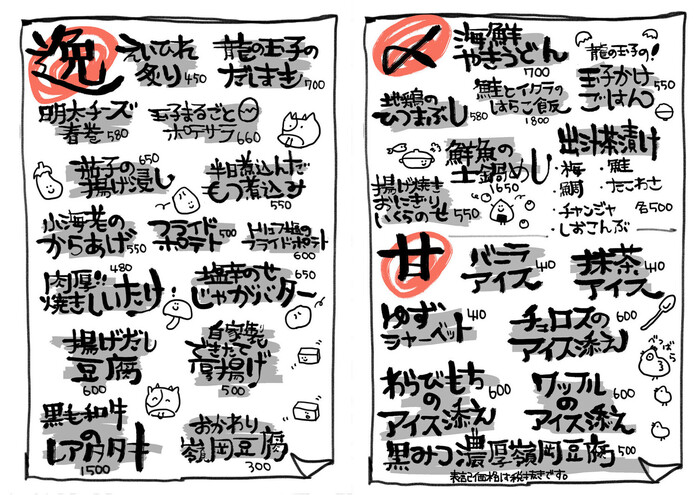 逸
えいひれ
炙り 450
龍の玉子の
だしまき 700
明太チーズ
春巻 580
玉子まるごと
ポテサラ 660
茄子の 650
揚げ浸し
半日煮込んだ
もつ煮込み
550
小海老の
からあげ 550
フライド
ポテト 500
トリュフ塩の
フライドポテト
600
肉厚!! 480
焼きしいたけ
塩辛のせ 650
じゃがバター
揚げだし
豆腐
600
自家製
できたて
厚揚げ
500
黒毛和牛
の
レアタタキ
1500
おかわり
嶺岡豆腐
300
〆
海鮮
やきうどん
700
龍の玉子の!
玉子かけ
ごはん 550
地鶏の
ひつまぶし 580
鮭とイクラの
はらこ飯
1800
鮮魚の
土鍋めし
1650
出汁茶漬け
・梅 ・鮭
・鯛 ・たこわさ
・チャンジャ 各500
・しおこんぶ
揚げ焼き
おにぎり
いくらのせ 550
甘
バニラ
アイス 410
抹茶
アイス 410
ゆず 410
シャーベット
チュロスの 600
アイス添え
ぺっぱら
わらびもち
の 600
アイス添え
ワッフル
の 600
アイス添え
黒みつ濃厚嶺岡豆腐 500
表記価格は税抜きです。